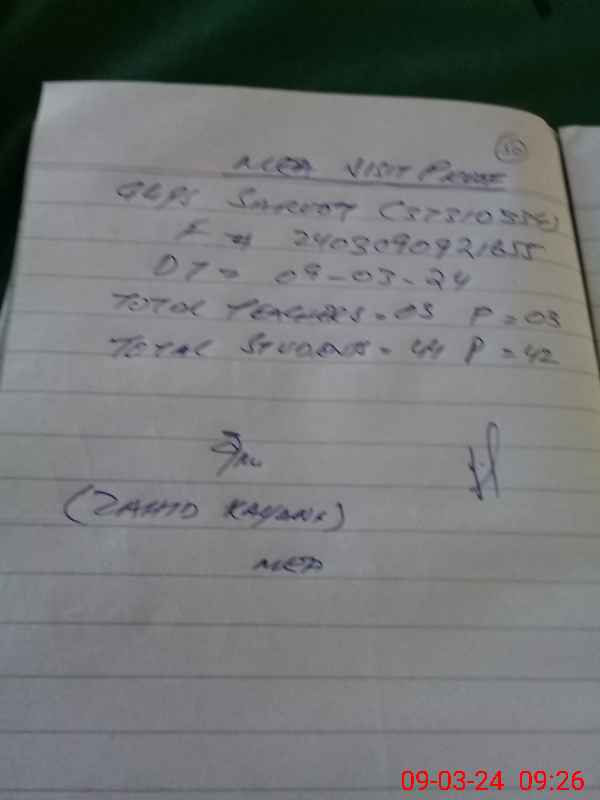 50
MEA VISIT PROOF
GGPS SARVOT
F # 2403090921655
DT = 09-03-24
TOTAL TEACHERS = 03 P = 03
TOTAL STUDENTS = 44 P = 42
(ZAHID
MEA
09-03-24 09:26